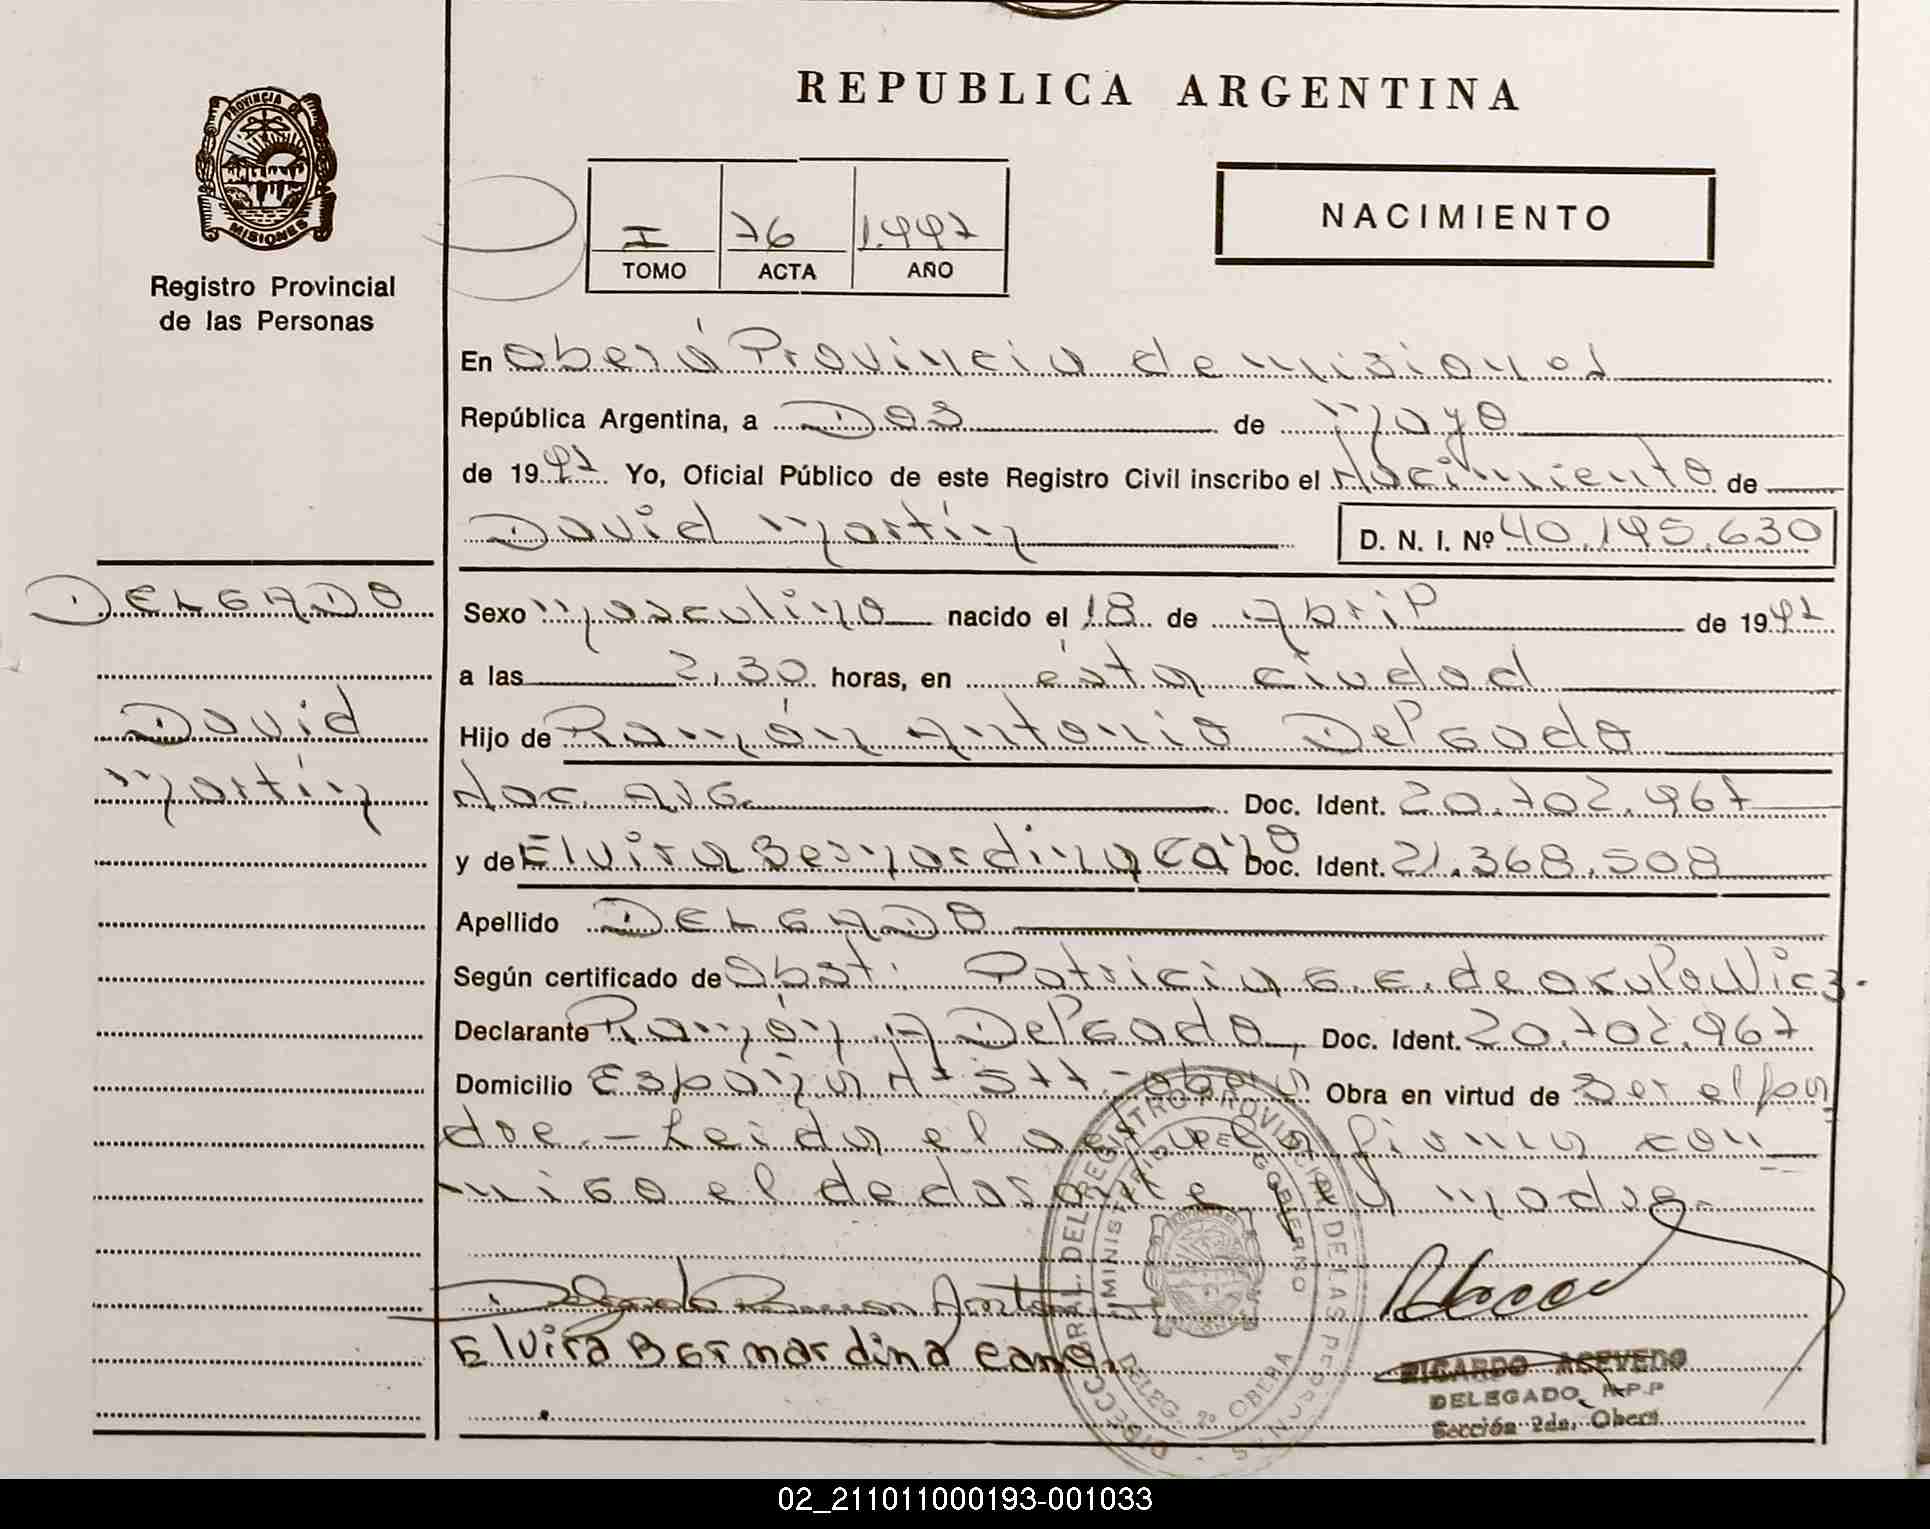 REPUBLICA ARGENTINA
PROVINCIA DE
MISIONES
Registro Provincial
de las Personas
I 76 1.997
TOMO ACTA AÑO
NACIMIENTO
En Oberá Provincia de Misiones
República Argentina, a Dos de Mayo
de 1997 Yo, Oficial Público de este Registro Civil inscribo el Nacimiento de
David Martín D. N. I. Nº 40.195.630
DELGADO
David
Martín
Sexo Masculino nacido el 18 de Abril de 1997
a las 2,30 horas, en ésta ciudad
Hijo de Ramón Antonio Delgado
Nac. Arg. Doc. Ident. 20.702.967
y de Elvira Bernardina Cano Doc. Ident. 21.368.508
Apellido DELGADO
Según certificado de Obst. Patricia G. E. de
Declarante Ramón A Delgado, Doc. Ident. 20.702.967
Domicilio España Nº 577 - Oberá Obra en virtud de Ser el pa
dre.- Leida el acta la firma con
migo el declarante y la madre.-
Delgado Ramon Antonio
Elvira Bernardina Cano.
RICARDO ACEVEDO
DELEGADO R.P.P
Sección 2da, Oberá
DIRECC. GRAL. DEL REGISTRO PROVINCIAL DE LAS PERSONAS
MINISTERIO DE GOBIERNO
DELEG. 2º OBERA
02_211011000193-001033